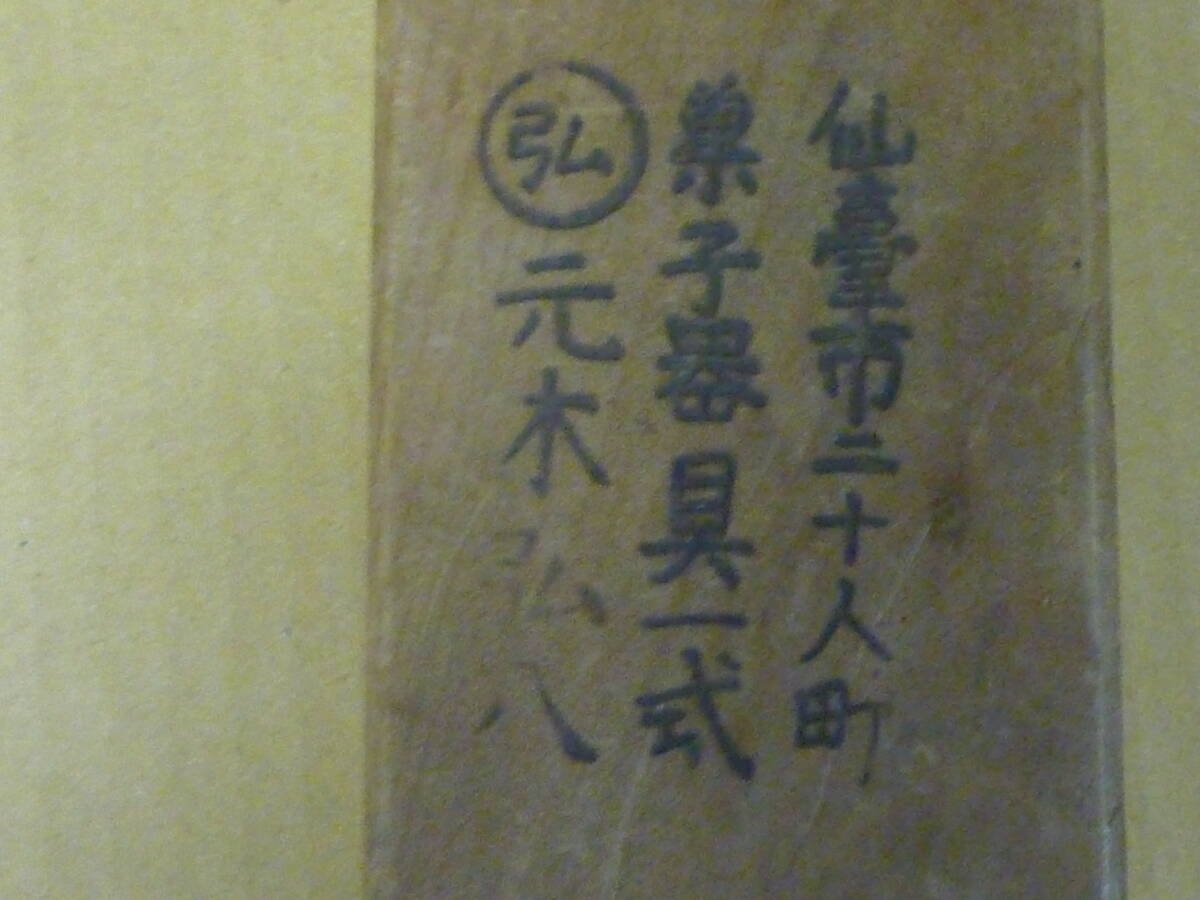 仙臺市二十人町
菓子器具一式
弘 元木弘八